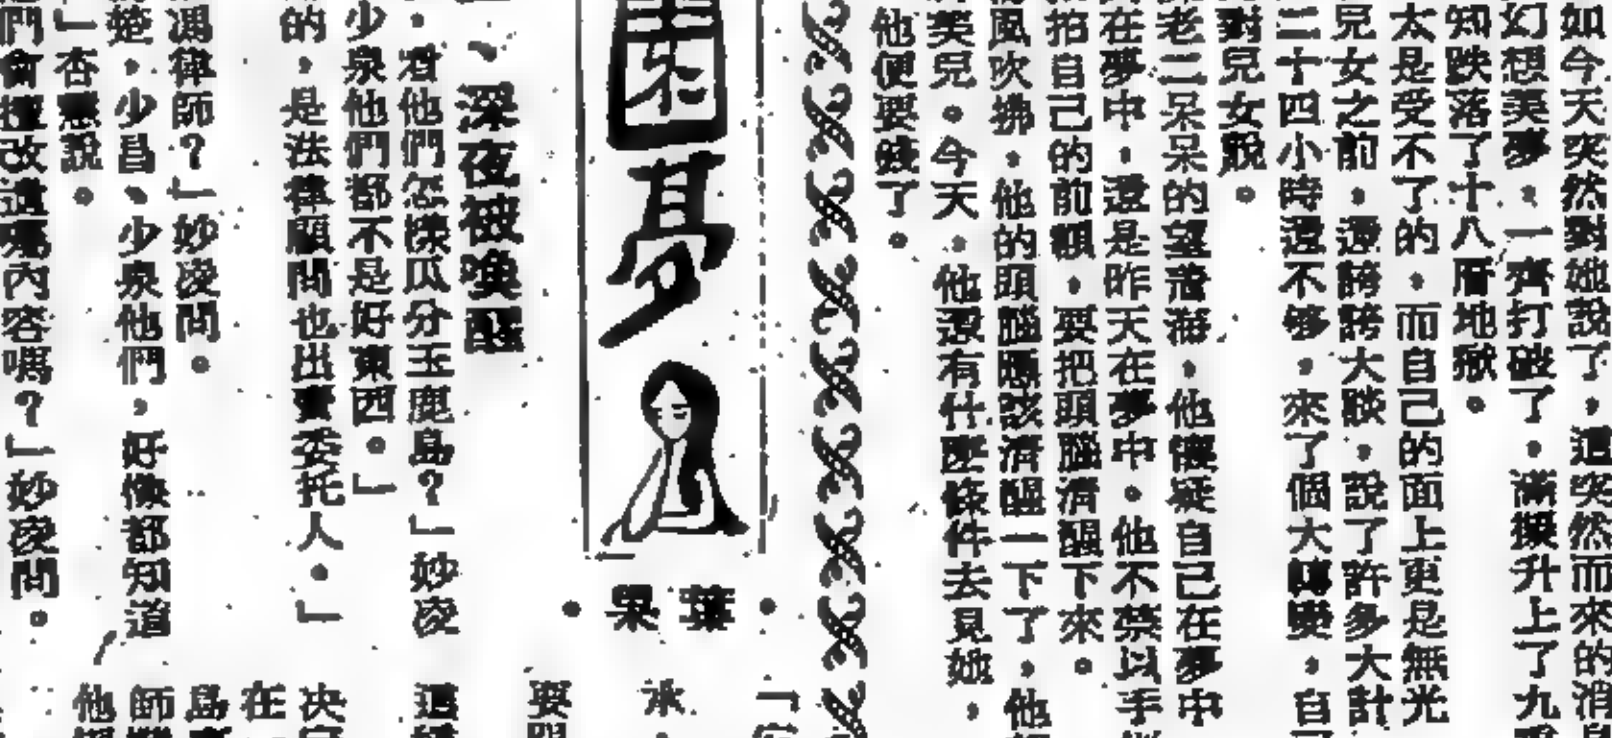 如今天突然對她說了，這突然而來的消息
幻想美夢，一齊打破了。滿擬升上了九
知跌落了十八層地獄。
太是受不了的，而自己的面上更是無光
兒女之前，還誇誇大談，說了許多大計
二十四小時還不够，來了個大轉變，自
對兒女說。
老二呆呆的望着海，他懷疑自己在夢中
在夢中，還是昨天在夢中。他不禁以手
拍自己的前額，要把頭腦清醒下來。
風吹拂，他的頭腦應該清醒一下了，他
美兒。今天，他還有什麼條件去見她，
他便要娶了。
園夢
•葉果•
、深夜被喚醒
，君他們怎樣瓜分玉鹿島？」妙凌
少泉他們都不是好東西。」
的，是法律顧問也出賣委托人。」
馮律師？」妙凌問。
楚，少昌、少泉他們，好像都知道
」杏慧說。
們會擅改遺囑內容嗎？」妙凌問。
「
承
要
這
决
在
島
師
他